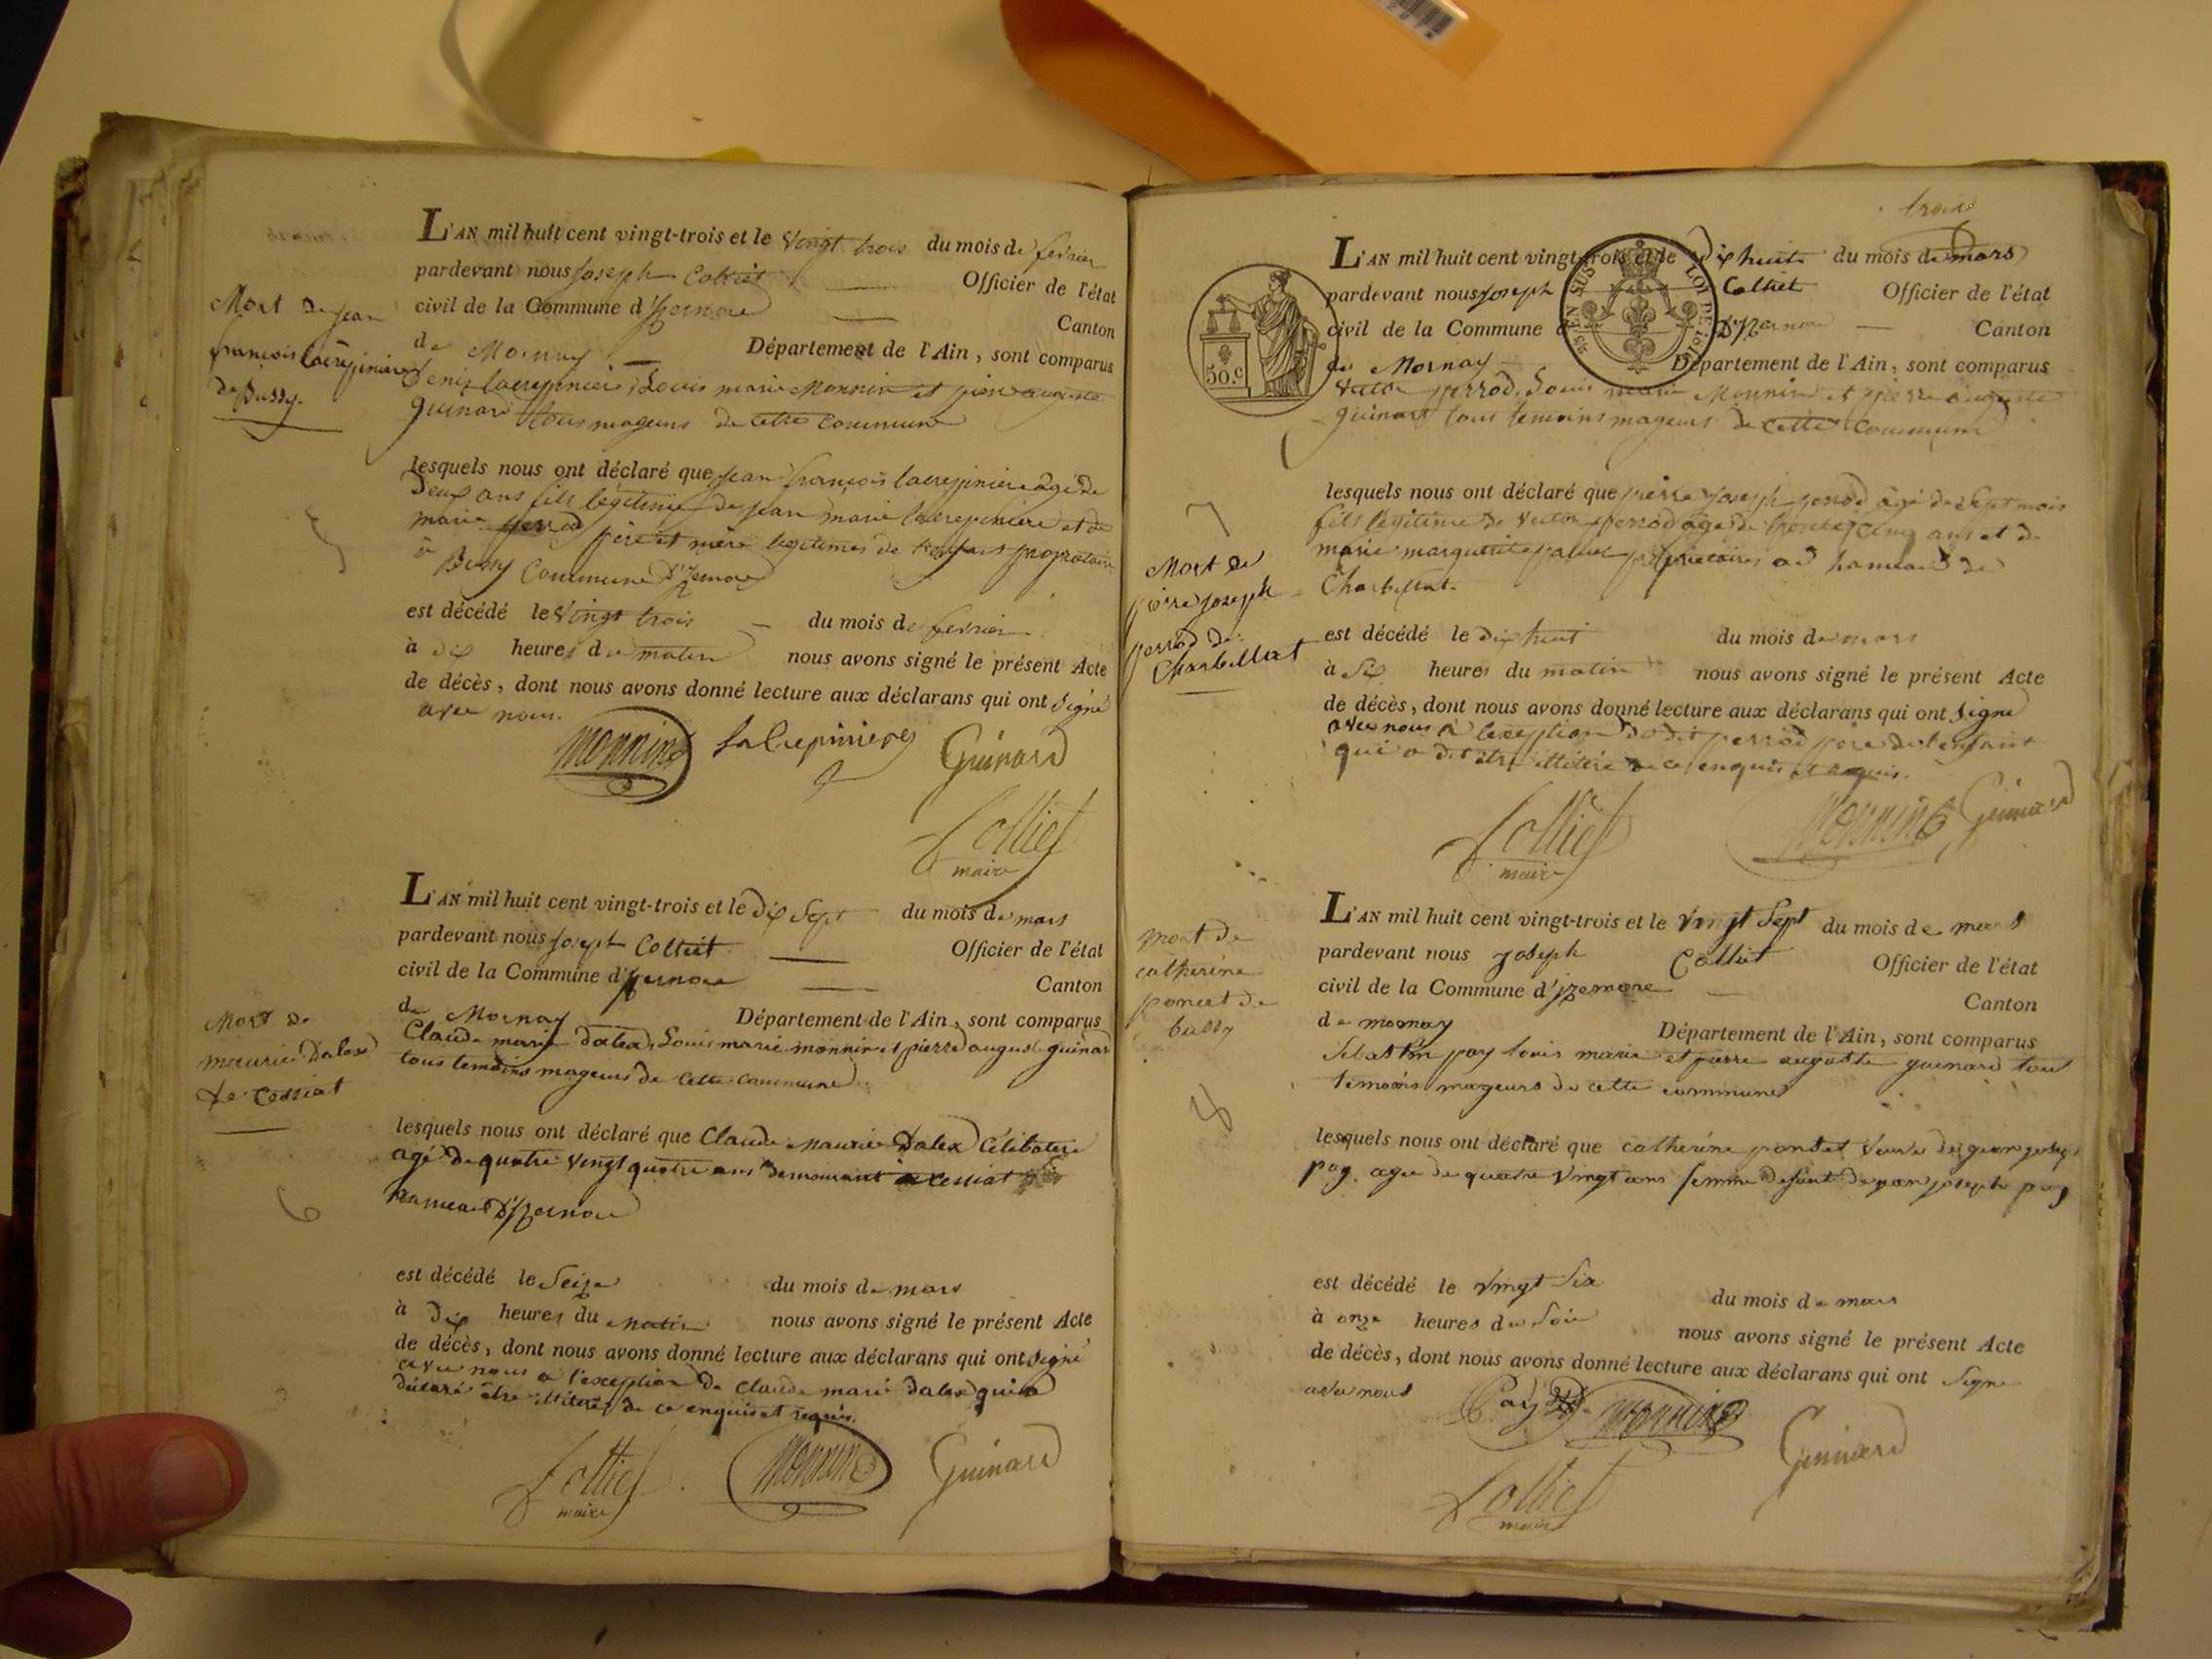 Mort de jean
françois lacrepiniere
de Bussy.
5
L'AN mil huit cent vingt-trois et le vingt trois du mois de fevrier
pardevant nous joseph Colliet Officier de l'état
civil de la Commune d'Izernore Canton
de Mornay Département de l'Ain, sont comparus
Denis lacrepiniere, Louis marie Monnin et pierre auguste
guinard tous mageurs de cette commune
lesquels nous ont déclaré que jean françois lacrepiniere agé de
deux ans fils légitime de jean marie lacrepiniere et de
marie perrod père et mère legitimes de
à Bussy Commune d'Izernore
est décédé le vingt trois du mois de fevrier
à dix heures du matin nous avons signé le présent Acte
de décès, dont nous avons donné lecture aux déclarans qui ont signé
avec nous.
Monnin lacrepiniere Guinard
Colliet
maire
Mort de
maurice Dalex
de Cessiat
6
L'AN mil huit cent vingt-trois et le dix sept du mois de mars
pardevant nous joseph Colliet Officier de l'état
civil de la Commune d'Izernore Canton
de Mornay Département de l'Ain, sont comparus
Claude marie dalex, Louis marie monnin et pierre august guinard
tous temoins mageurs de cette commune
lesquels nous ont déclaré que Claude Maurice Dalex Célibataire
agé de quatre vingt quatre ans demeurant a cessiat
hameau d'Izernore
est décédé le Seize du mois de mars
à dix heures du matin nous avons signé le présent Acte
de décès, dont nous avons donné lecture aux déclarans qui ont signé
avec nous a l'exception de claude marie dalex qui a
déclaré être illitéré de ce enquis et requis.
Colliet Monnin Guinard
maire
trois
50.c
EN SUS LOI DE 1816
7
Mort de
pierre joseph
perrod de
Charbillat
L'AN mil huit cent vingt-trois et le dix huit du mois de mars
pardevant nous joseph Colliet Officier de l'état
civil de la Commune d'Izernore Canton
de Mornay Département de l'Ain, sont comparus
victor perrod, Louis marie Monnin et pierre auguste
guinard tous temoins mageurs de cette commune
lesquels nous ont déclaré que pierre joseph perrod agé de sept mois
fils légitime de victor perrod agé de trente cinq ans et de
marie marguerite propriétaires au hameau de
Charbillat.
est décédé le dix huit du mois de mars
à six heures du matin nous avons signé le présent Acte
de décès, dont nous avons donné lecture aux déclarans qui ont signé
avec nous à l'exception dudit perrod père de l'enfant
qui a dit être illitéré de ce enquis et requis.
Colliet Monnin Guinard
maire
mort de
catherine
poncet de
bussy
8
L'AN mil huit cent vingt-trois et le vingt sept du mois de mars
pardevant nous joseph Colliet Officier de l'état
civil de la Commune d'izernore Canton
de mornay Département de l'Ain, sont comparus
Sebastin pay louis marie et pierre auguste guinard tout
temoins mageurs de cette commune
lesquels nous ont déclaré que catherine ponset veuve de
pay agee de quatre vingt ans femme defunt de joseph pay
est décédé le vingt six du mois de mars
à onze heures du soir nous avons signé le présent Acte
de décès, dont nous avons donné lecture aux déclarans qui ont signe
avec nous Pay Monnin
Guinard
Colliet
maire